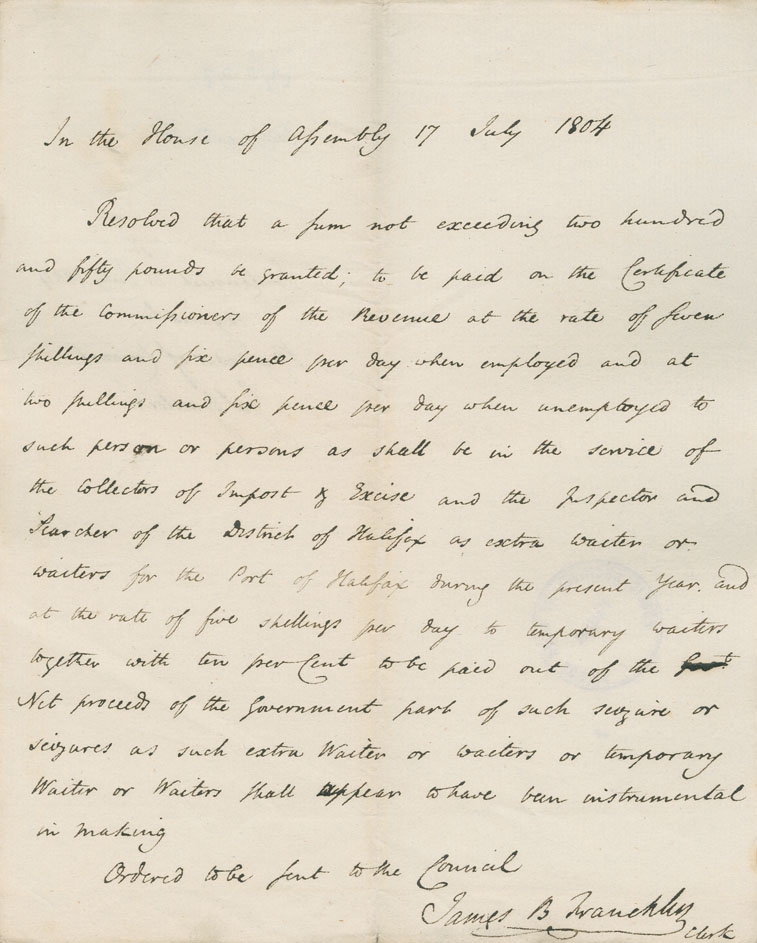 In the House of Assembly 17 July 1804
Resolved that a sum not exceeding two hundred
and fifty pounds be granted; to be paid on the Certificate
of the Commissioners of the Revenue at the rate of seven
shillings and six pence per day when employed and at
two shillings and six pence per day when unemployed to
such person or persons as shall be in the service of
the Collectors of Impost & Excise and the Inspector and
Searcher of the District of Halifax as extra waiter or
waiters for the Port of Halifax during the present Year. and
at the rate of five shillings per day to temporary waiters
together with ten per Cent to be paid out of the
Net proceeds of the Government part of such seizure or
seizures as such extra Waiter or waiters or temporary
Waiter or Waiters shall appear to have been instrumental
in making
Ordered to be sent to the Council
James B Francklin
Clerk